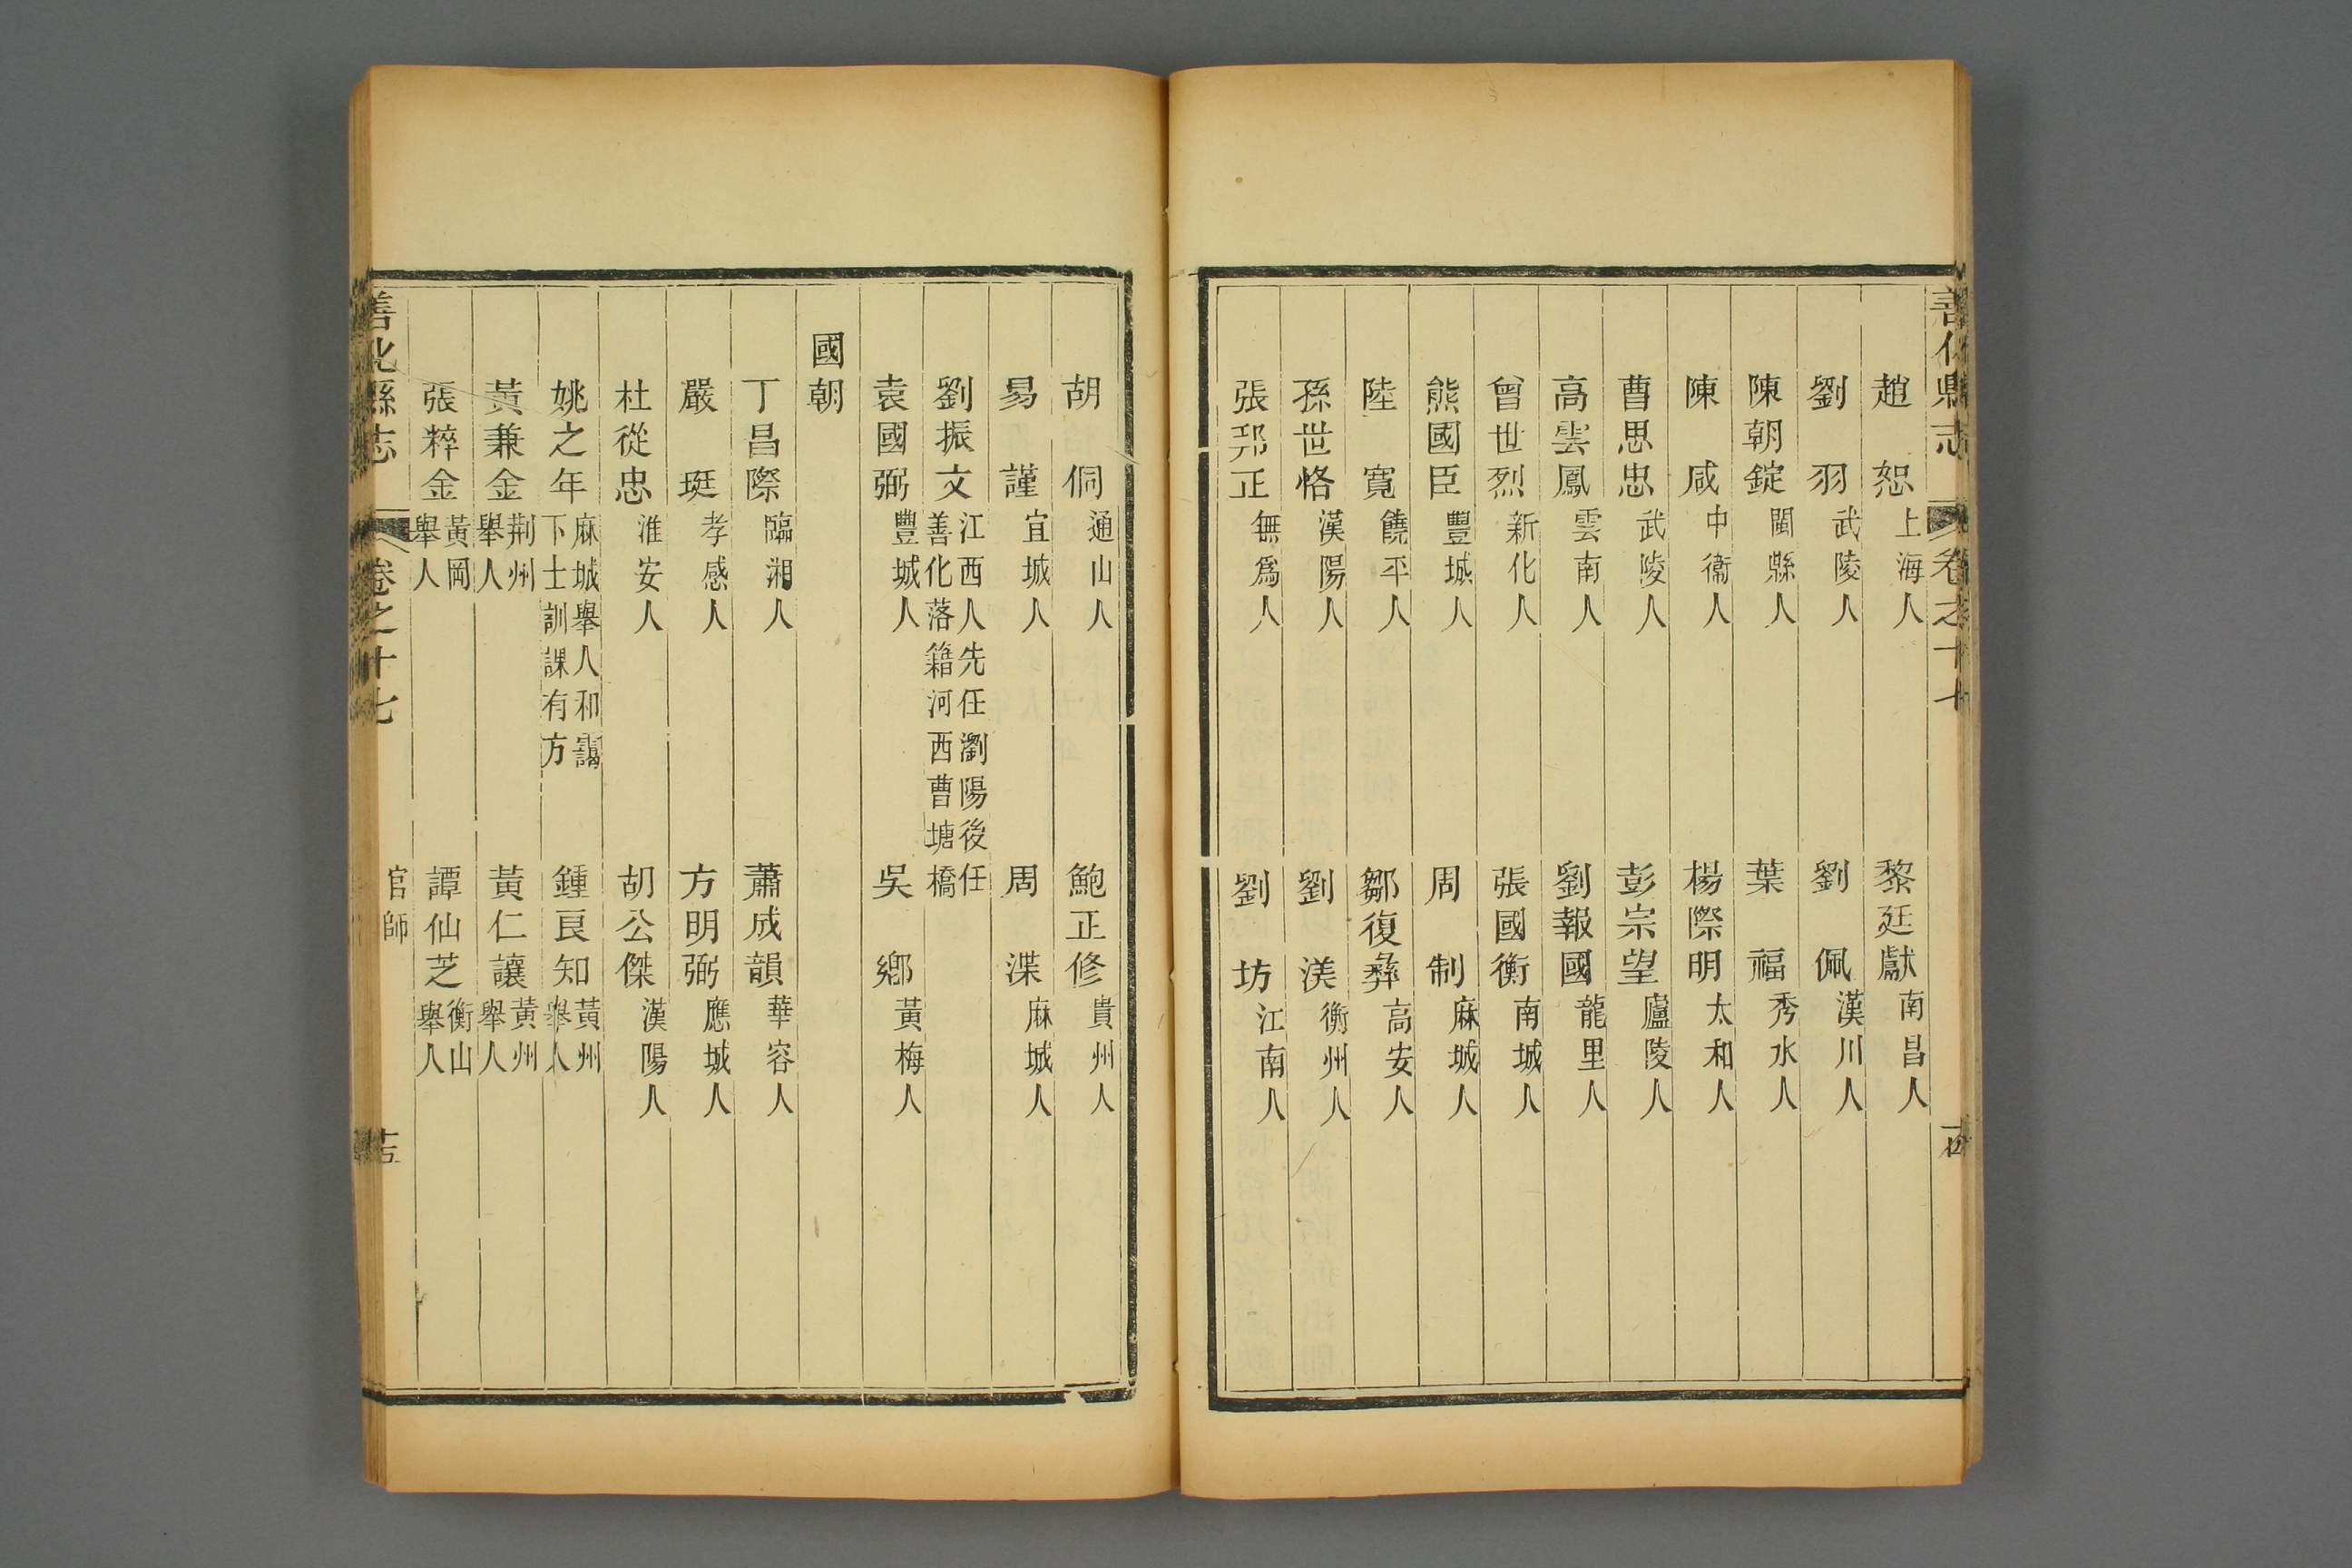 善化縣志 卷之十七 十四
趙 恕 上海人 黎廷獻 南昌人
劉 羽 武陵人 劉 佩 漢川人
陳朝錠 閩縣人 葉 福 秀水人
陳 咸 中衞人 楊際明 太和人
曹思忠 武陵人 彭宗望 廬陵人
高雲鳳 雲南人 劉報國 龍里人
曾世烈 新化人 張國衡 南城人
熊國臣 豐城人 周 制 麻城人
陸 寬 饒平人 鄒復彝 高安人
孫世恪 漢陽人 劉 渼 衡州人
張邦正 無爲人 劉 坊 江南人
胡 侗 通山人 鮑正修 貴州人
易 謹 宜城人 周 渫 麻城人
劉振文 江西人先任瀏陽後任善化落籍河西曹塘橋
袁國弼 豐城人 吳 鄉 黃梅人
國朝
丁昌際 臨湘人 蕭成韻 華容人
嚴 珽 孝感人 方明弼 應城人
杜從忠 淮安人 胡公傑 漢陽人
姚之年 麻城舉人和靄下士訓課有方 鍾良知 黃州舉人
黃兼金 荆州舉人 黃仁讓 黃州舉人
張粹金 黃岡舉人 譚仙芝 衡山舉人
善化縣志 卷之十七 官師